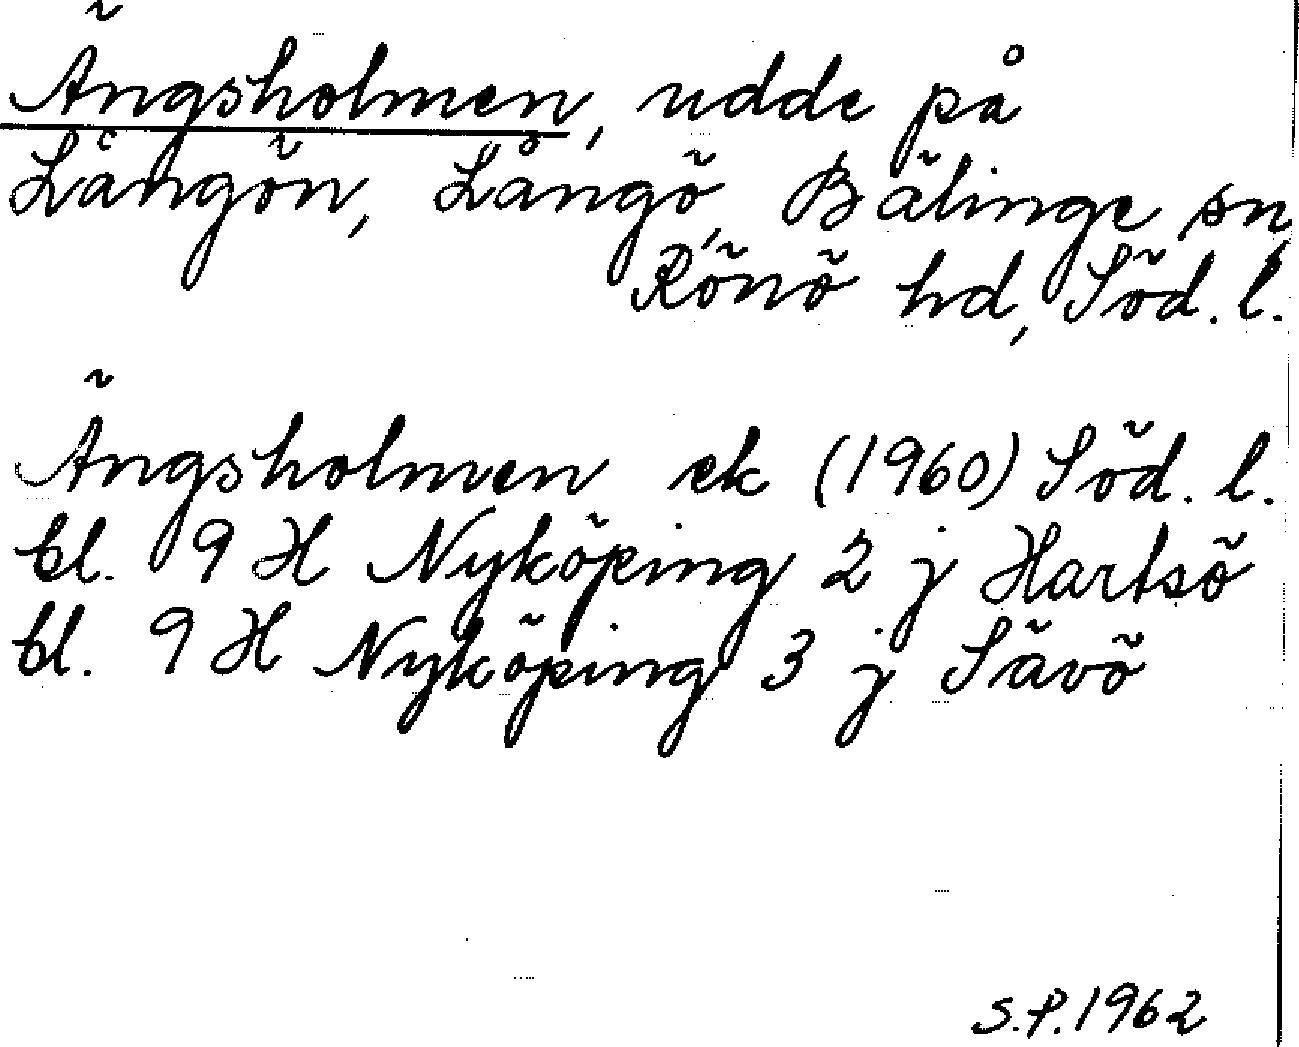 Ängsholmen, udde på
Långön, Långö, Bälinge sn,
Rönö hd, Söd. l.
Ängsholmen ek (1960) Söd. l.
bl. 9 H Nyköping 2 j Hartsö
bl. 9 H Nyköping 3 j Sävö
S.P. 1962